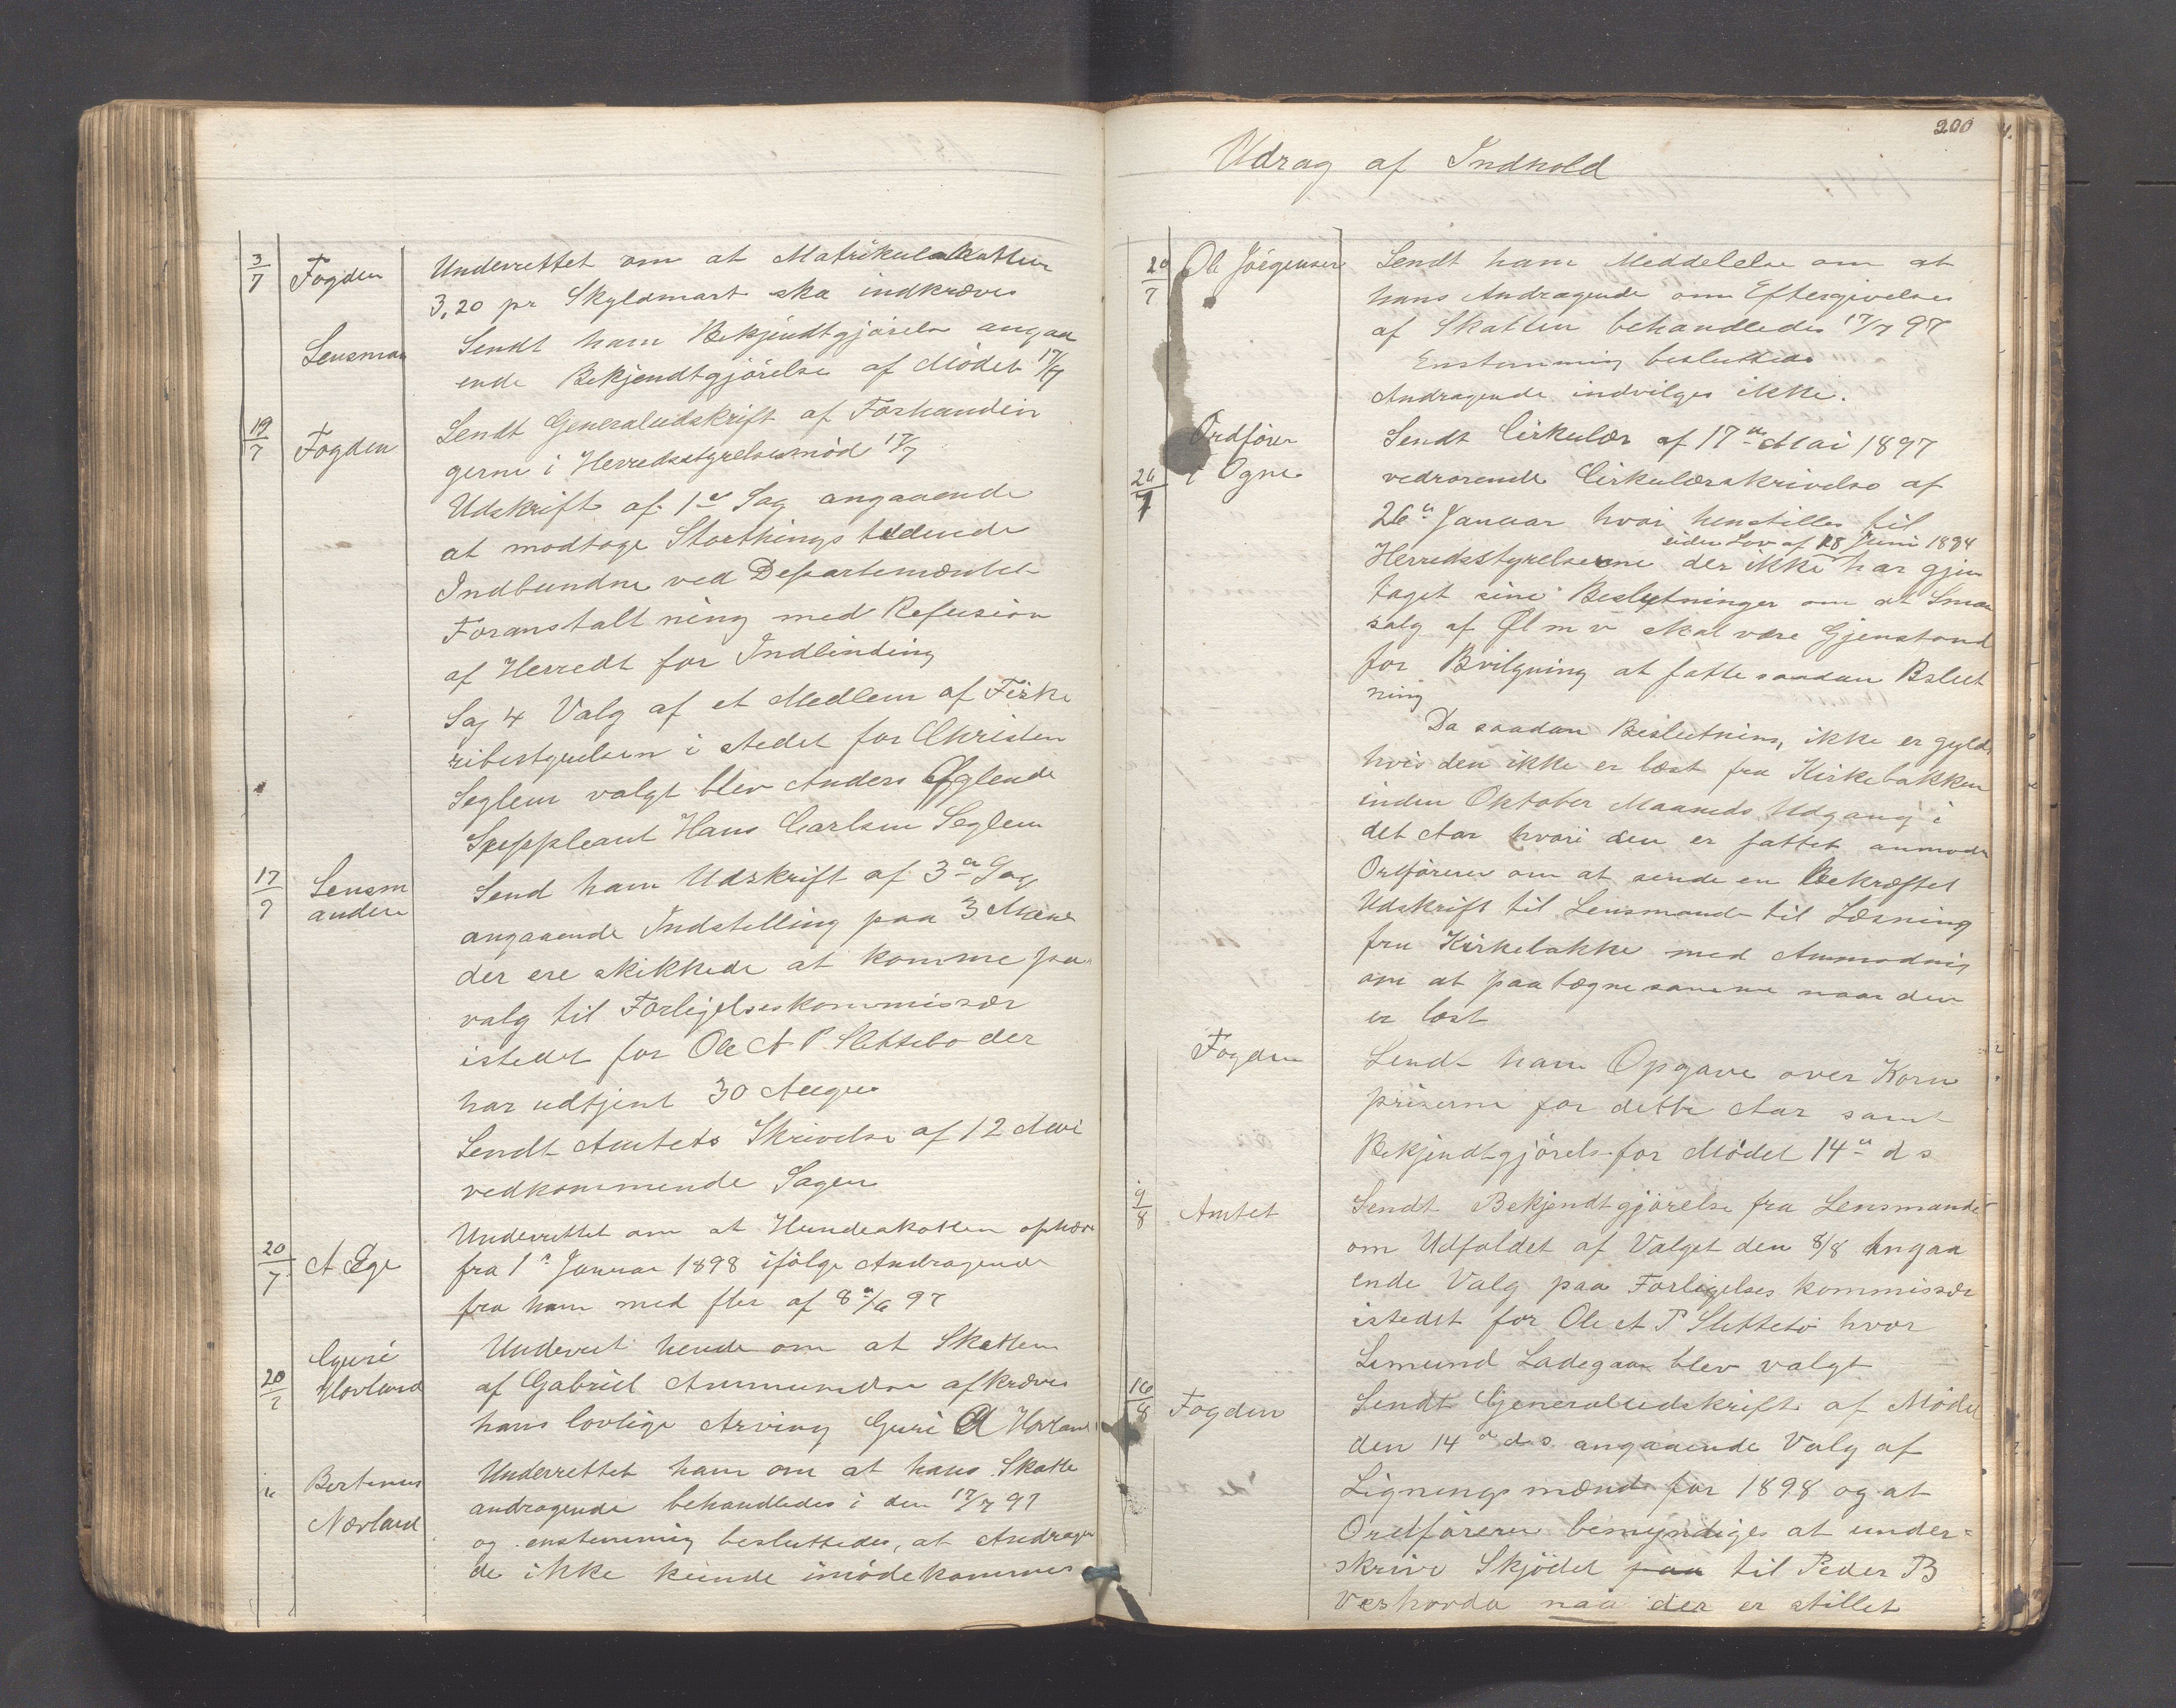 3/7 Fogden Underrettet om at Matrikulskatten
3,20 pr Skyldmark ska indkræves
Lensman Sendt ham Bekjendtgjörelse angaa
ende Bekjendtgjörelse af Mödet 17/7
19/7 Fogden Sendt Generaludskrift af Forhandlin
gerne i Herredsstyrelsesmöd 17/7
Udskrift af 1ste Sag angaaende
at modtage Storthings tidende
Indbundne ved Departementet
Foranstaltning med Refusion
af Herredt for Indbinding
Sag 4 Valg af et Medlem af
styrelsen i stedet for Christen
Seglem valgt blev Anders Øglende
Suppleant Hans Carlsen Seglem
17/7 Lensm
anden
Send ham Udskrift af 3die Sag
angaaende Indstelling paa 3 Mænd
der ere skikkede at komme paa
valg til Forligelseskommissær
istedet for Ole A P Slettebø der
har udtjent 30 Augus
Sendt Amtets Skrivelse af 12 Mai
vedkommende Sagen
Underrettet om at Hundeskatten ophæves
20/7 A Ege fra 1ste Januar 1898 ifölge Andragende
fra ham med fler af 8/6 97
Guri Underret hende om at Skatten
20/7 Hovland af Gabriel Ammundsen afkræves
hans lovlige Arving Guri A Hovland
" Bertinius Underrettet ham om at hans Skatte
andragende behandledes i den 17/7 97
Nærland og enstemmig besluttedes, at Andragen
de ikke kunde imödekommes
200
Udrag af Indhold
20/7 Ole Jörgensen Sendt ham Meddelelse om at
hans Andragende om Eftergivelse
af Skatten behandledes 17/7 97
Enstemmig besluttedes
Andragende indvilges ikke.
Ordförer Sendt Cirkulær af 17de Mai 1897
26/7 i Ogne vedrørende Cirkulærskrivelse af
26de Januar hvori henstilles til
siden Lov af 18 Juni 1884
Herredsstyrelserne der ikke har gjen
taget sine Beslutninger om at Smaa
salg af Øl m v skal være Gjenstand
for Bvilgning at fatte saadan Bslut
ning
Da saadan Beslutning, ikke er gyld
hvis den ikke er læst fra Kirkebakken
inden Oktober Maaneds Udgang i
det Aar hvori den er fattet anmod
Ordföreren om at sende en Bekræftet
Udskrift til Lensmand til Læsning
fra Kirkebakke med Anmodnig
om at paategne samme naar den
er læst
Fogden Sendt ham Opgave over Korn
priserne for dette Aar samt
Bekjendtgjörels for Mödet 14de d s
9/8 Amtet Sendt Bekjendtgjörelse fra Lensmanden
om Udfaldet af Valget den 8/8 angaa
ende Valg paa Forligelses kommissær
istedet for Ole A P Slettebö hvor
Simund Ladegaar blev valgt
16/8 Fogden Sendt Generaludskrift af Mödet
den 14de d s angaaende Valg af
Ligningsmænd for 1898 og at
Ordföreren bemyndiges at under=
skrive Skjödet paa til Peder B
Vershovda naa der er stillet